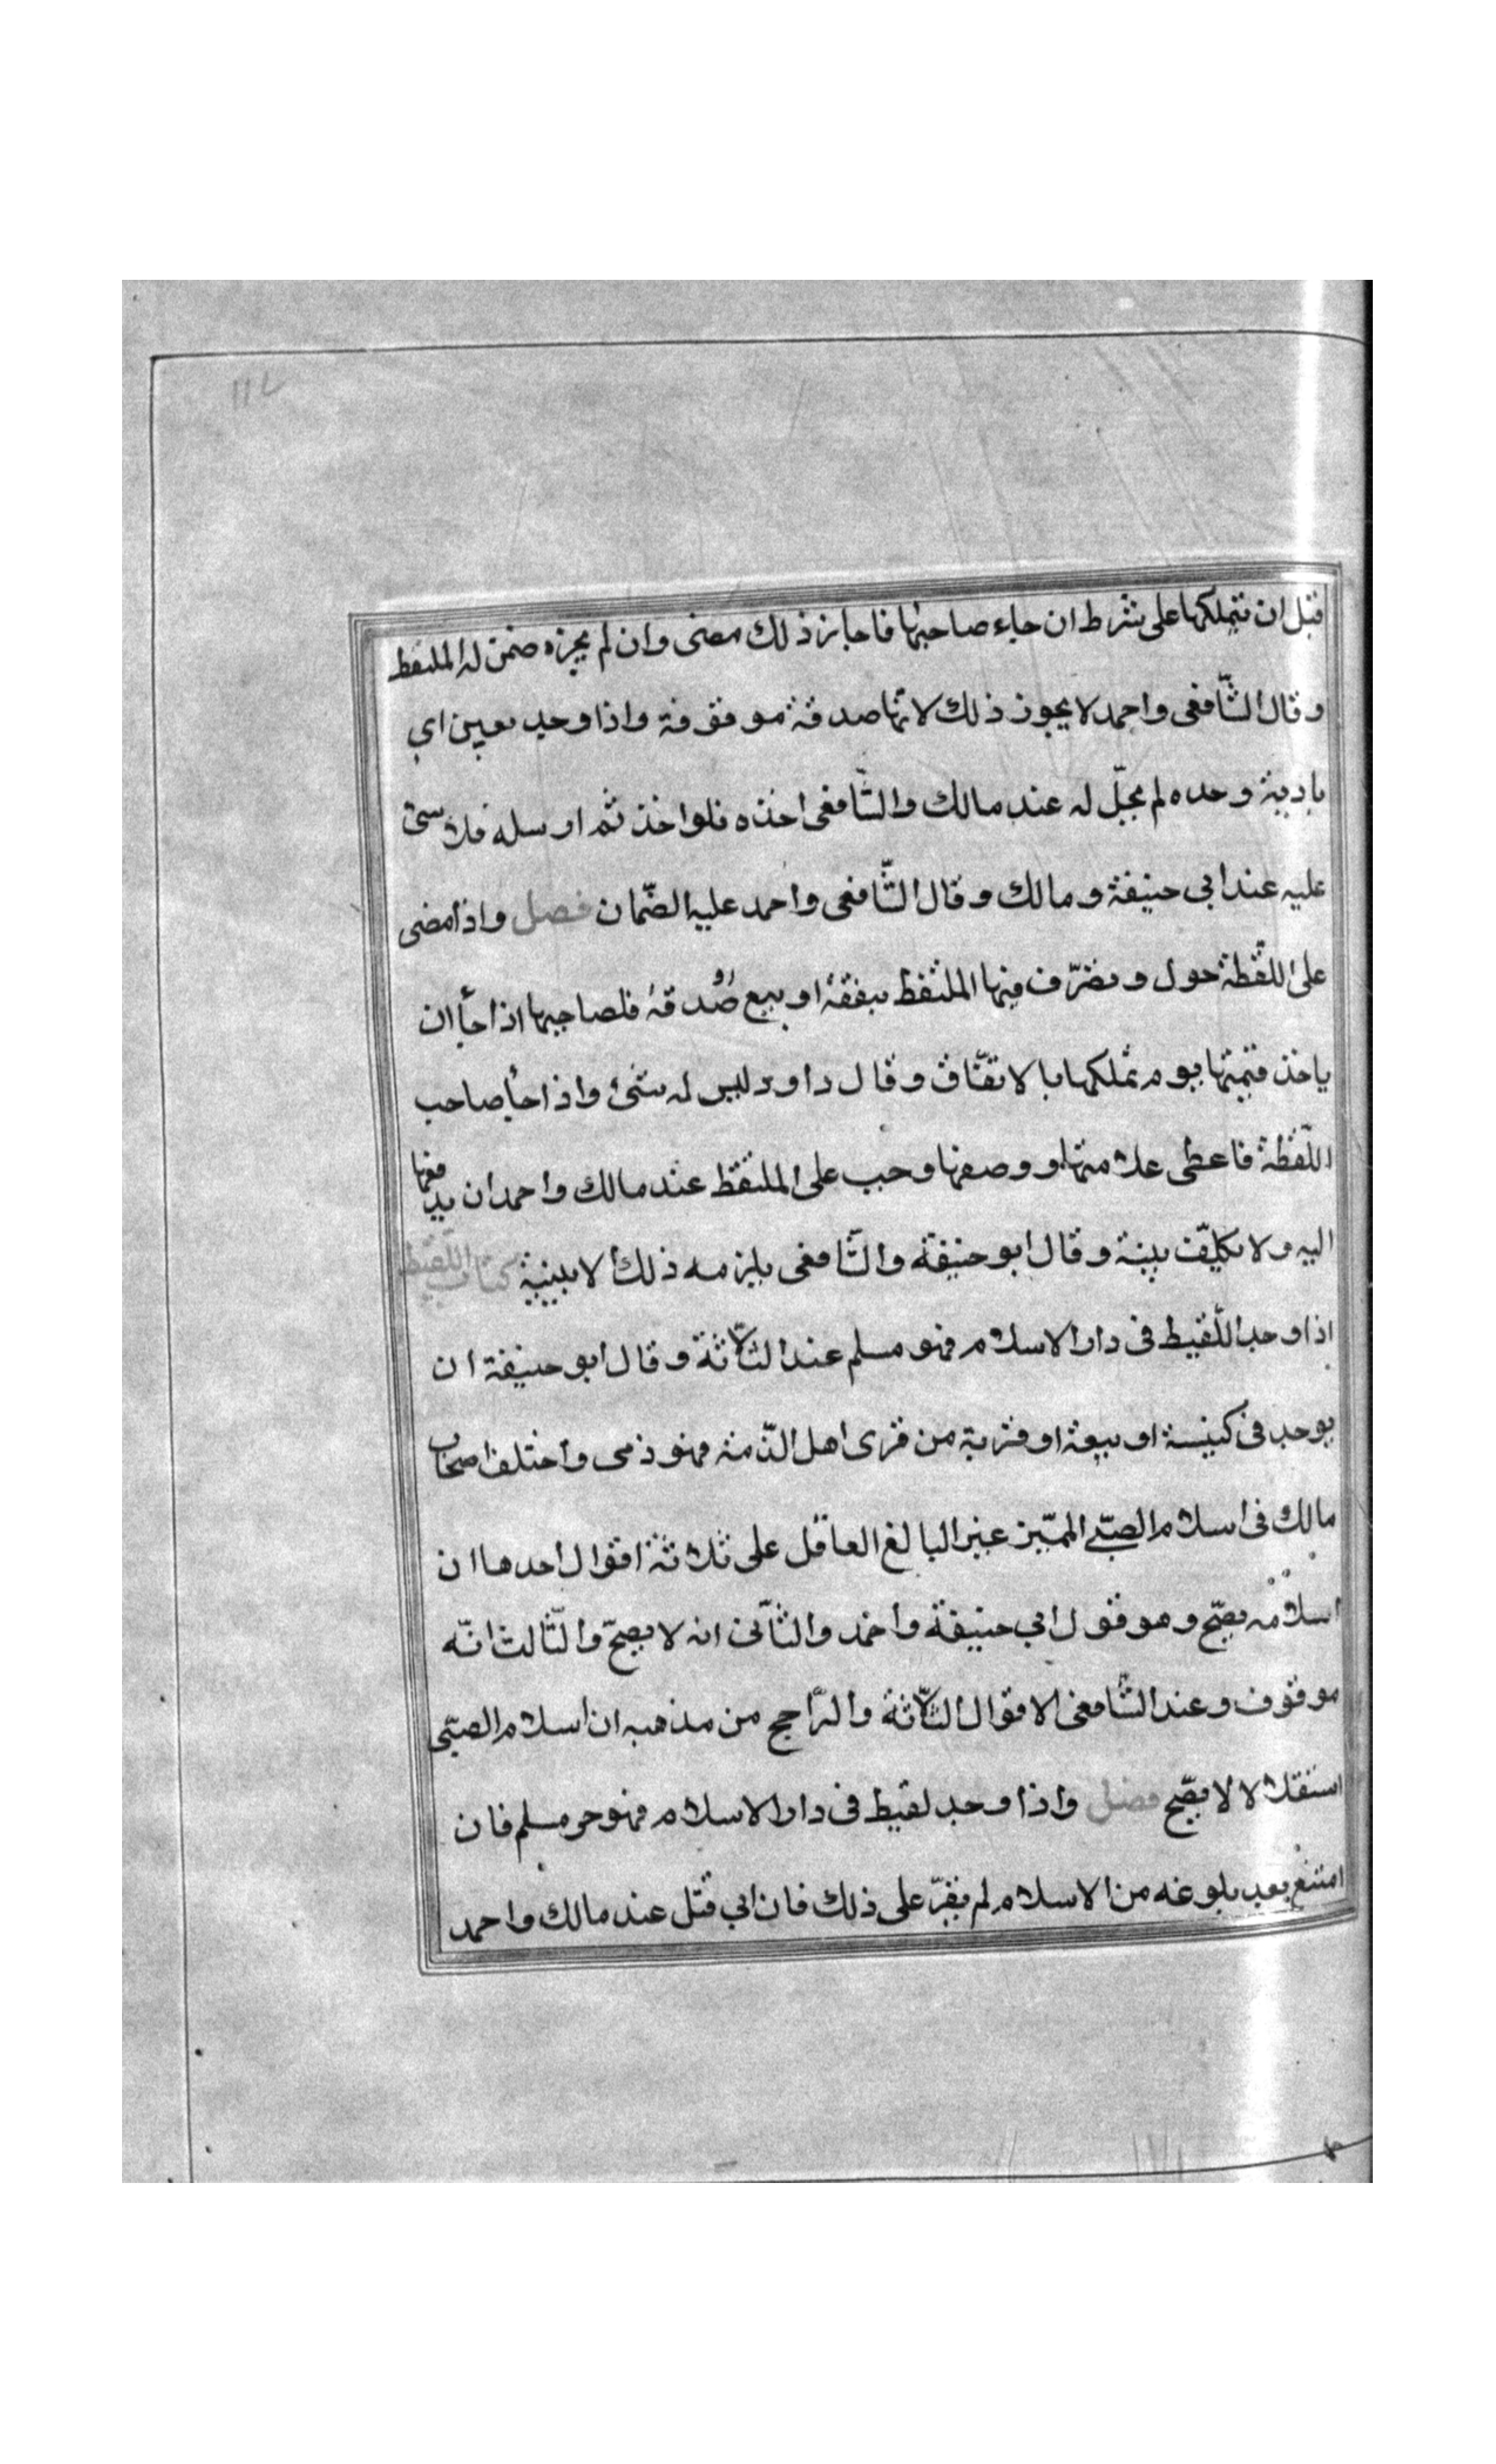 ١١٧
قبل ان يتملكها على شرط ان جاء صاحبها فاجاز ذلك مضى وان لم يجزه ضمن له الملتقط
وقال الشّافعى واحمد لا يجوز ذلك لانّها صدقة موقوفة واذا وجد بعيرا
بادية وحده لم يجلّ له عند مالك والشّافعى اخذه فلو اخذ ثم ارسله فلا شئ
عليه عند ابى حنيفة ومالك وقال الشّافعى واحمد عليه الضّمان فصل واذا مضى
على اللّقطة حول وتصرّف فيها الملتقط بنفقة او بيع او صدقة فلصاحبها اذا جأ ان
ياخذ قيمتها يوم تملكها بالاتفّاق وقال داود ليس له شئ واذا جأ صاحب
اللّقطة فاعطى علامتها ووصفها وجب على الملتقط عند مالك واحمد ان يدفعها
اليه ولا يكلّيف بينة وقال ابو حنيفة والشّافعى يلزمه ذلك الا ببينة كتاب اللّقيط
اذا وجد اللّقيط فى دار الاسلام فهو مسلم عند الثّلاثة وقال ابو حنيفة ان
يوجد فى كنيسة او بيعة او قرية من قرى اهل الذّمة فهو ذمى واختلف اصحاب
مالك فى اسلام الصبّى المميّز غير البالغ العاقل على ثلاثة اقوال احدها ان
اسلامه يصحّ وهو قول ابى حنيفة واحمد والثّانى انه لا يصحّ والثّالث انّه
موقوف وعند الشّافعى الاقوال الثّلاثة والرّاجح من مذهبه ان اسلام الصبّى
استقلالا لا يصّح فصل واذا وجد لقيط فى دار الاسلام فهو حر مسلم فان
امتنع بعد بلوغه من الاسلام لم يقرّ على ذلك فان ابى قتل عند مالك واحمد